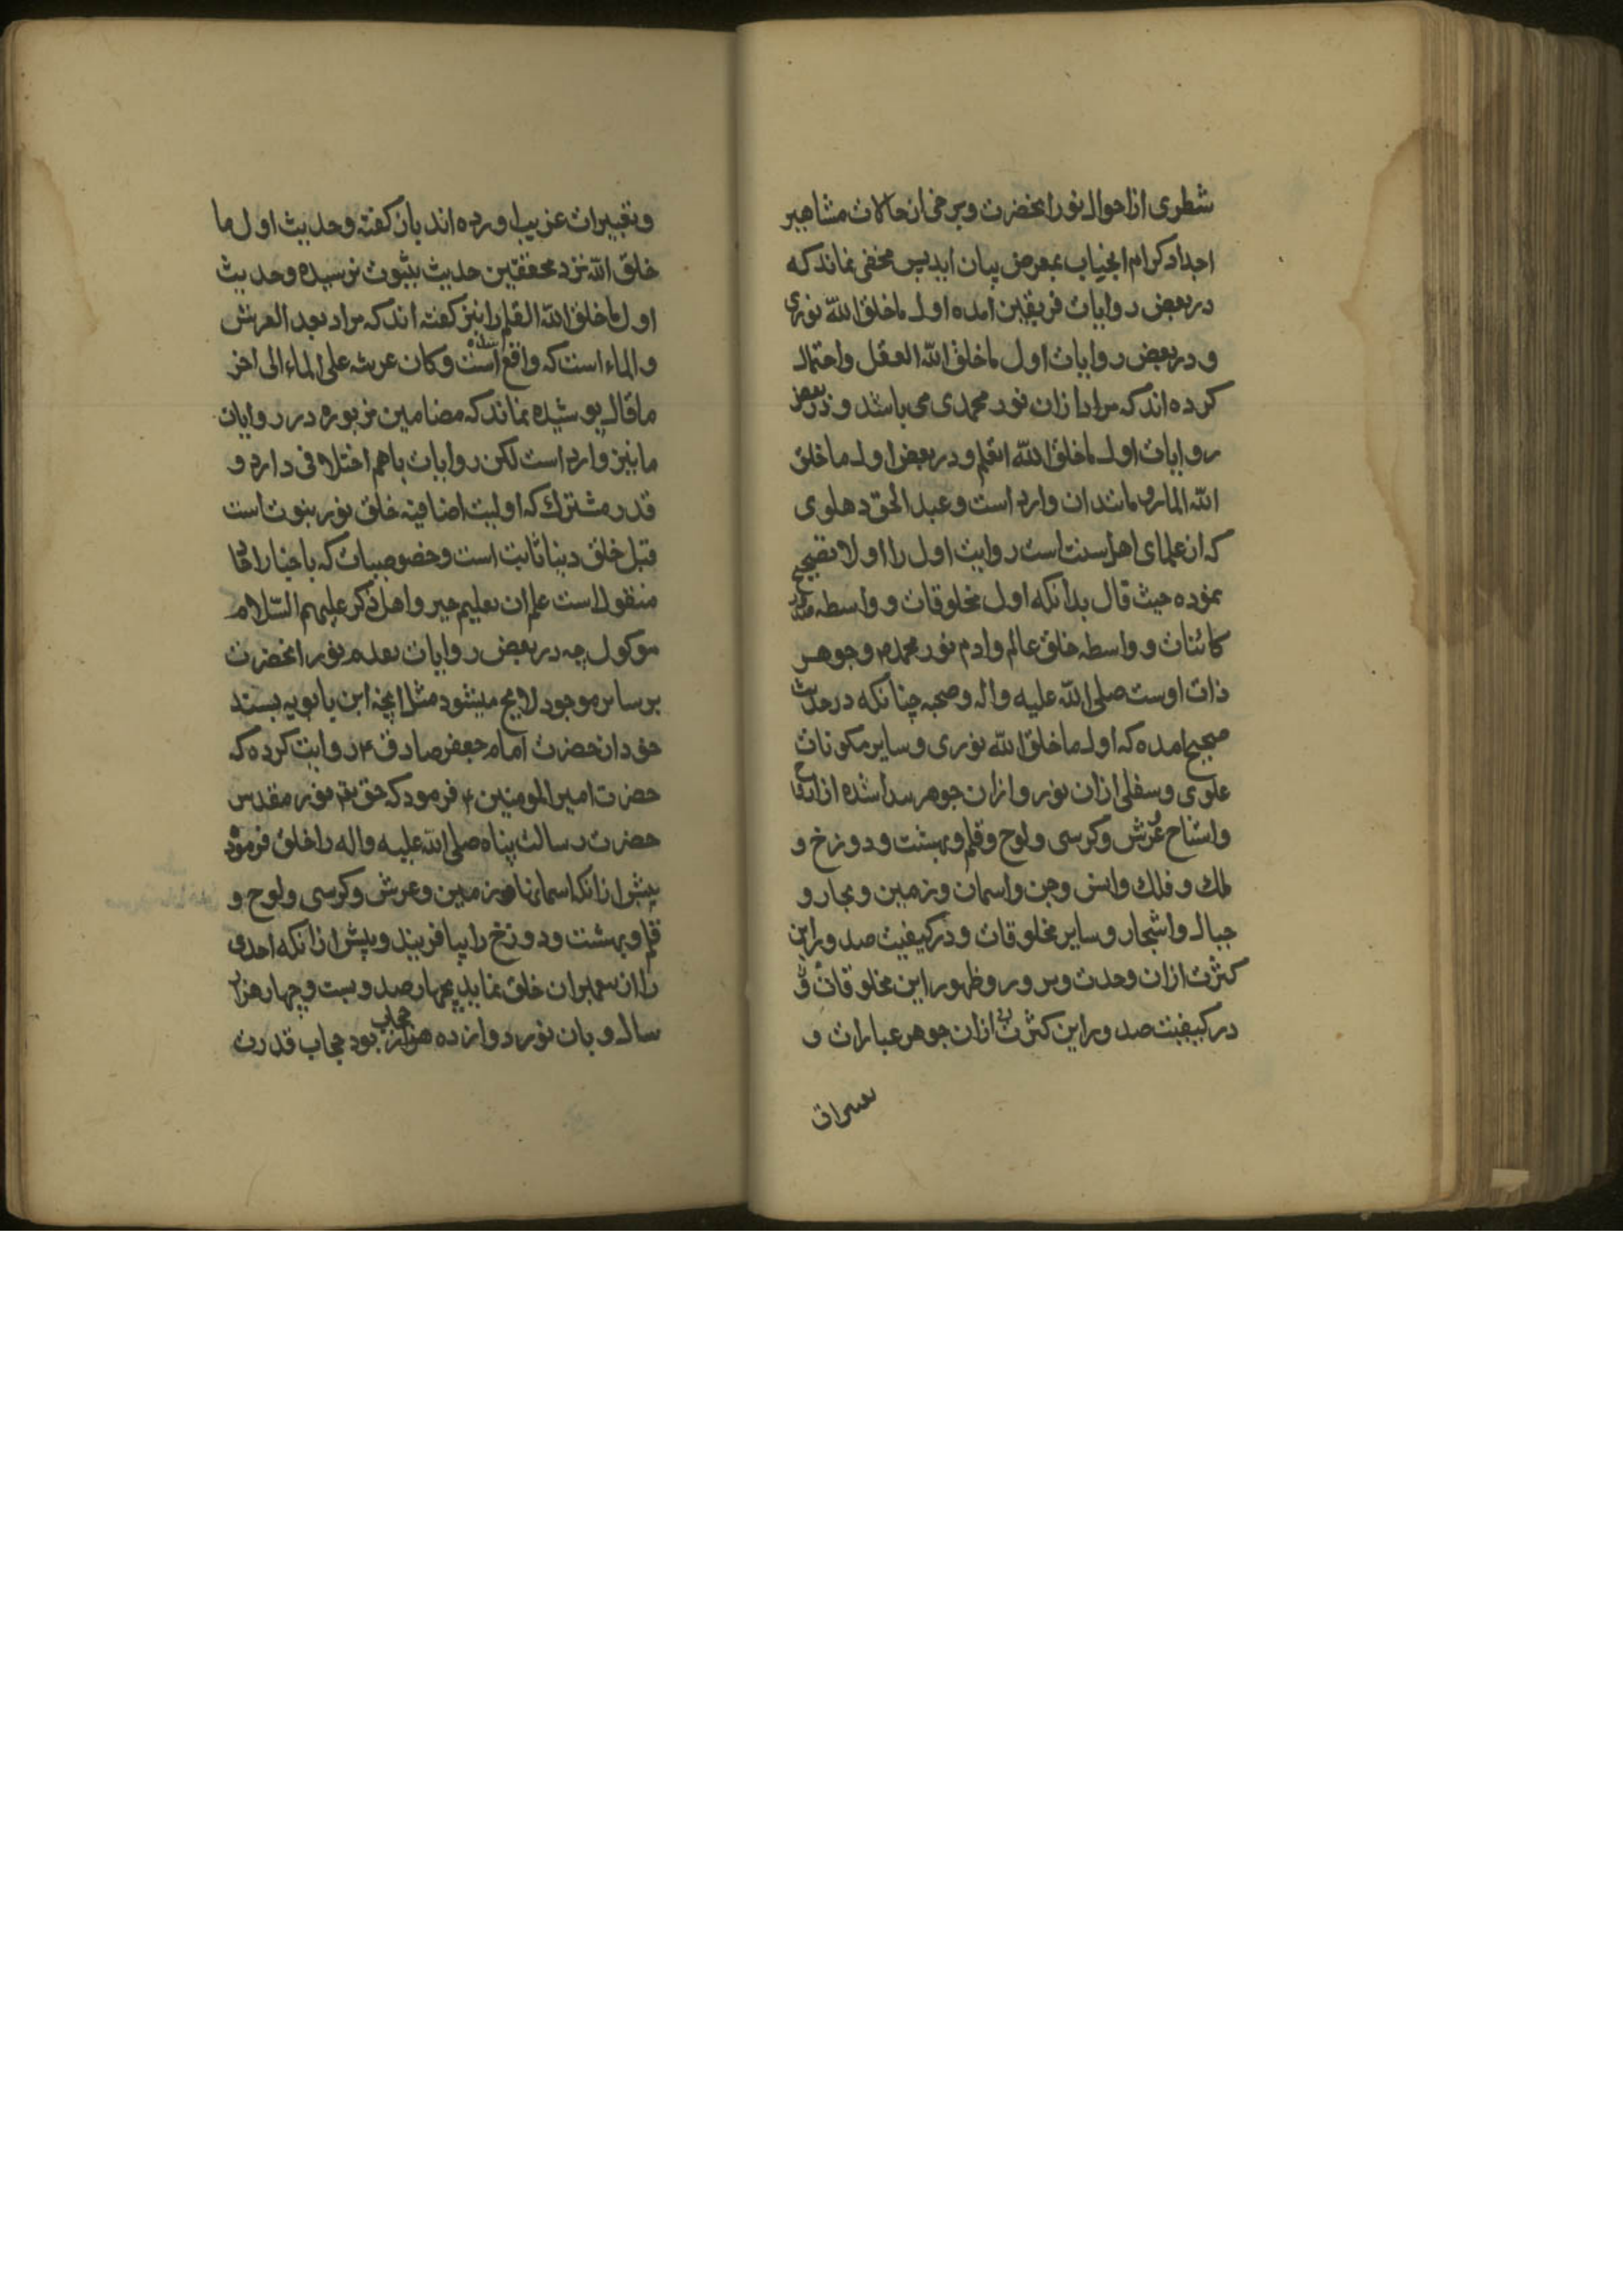 شطری از احوال نور انحضرت و برخی از حالات مشاهیر
اجداد کرام انجناب بمعرض بیان اید پس مخفی نماند که
در بعض روایات فریقین امده اول ما خلق الله نوری
و در بعض روایات اول ما خلق الله العقل و احتمال
کرده اند که مراد از ان نور محمدی می باشد و در بعض
روایات اول ما خلق الله القلم و در بعض اول ما خلق
الله الماء و مانند ان وارد است و عبد الحق دهلوی
که از علمای اهل سنت است روایت اول را اولا تصحیح
نموده حیث قال بدانکه اول مخلوقات و واسطه
کائنات و واسطه خلق عالم و ادم نور محمد و جوهر
ذات اوست صلی الله علیه و اله و صحبه چنانکه در حدیث
صحیح امده که اول ما خلق الله نوری و سایر مکونات
علوی و سفلی از ان نور و از ان جوهر پیدا شده از
و عرش و کرسی و لوح و قلم و بهشت و دوزخ و
ملک و فلک و انس و جن و اسمان و زمین و بحار و
جبال و اشجار و سایر مخلوقات و در کیفیت صدور این
کثرت از ان وحدت و بروز و ظهور این مخلوقات و
در کیفیت صدور این کثرت از ان جوهر عبارات و
تعبیرات
و تعبیرات غریب اورده اند بان گفته و حدیث اول ما
خلق الله نزد محققین حدیث بثبوت نرسیده و حدیث
اول ما خلق الله القلم را نیز گفته اند که مراد بعد العرش
و الماء است که واقع شده است و کان عرشه علی الماء الی اخر
ما قال پوشیده نماند که مضامین مزبوره در روایات
ما نیز وارد است لکن روایات باهم اختلافی دارد و
قدر مشترک که اولیت اضافیه خلق نور نبوت است
قبل خلق دنیا ثابت است و خصوصیات که باخبار احاد
منقول است علم ان بعلیم خبیر و اهل ذکر علیهم السلام
موکول چه در بعض روایات تقدم نور انحضرت
بر سایر موجود لایح میشود مثل انچه ابن بابویه بسند
خود از حضرت امام جعفر صادق ع روایت کرده که
حضرت امیر المومنین ع فرمود که حق تعم نور مقدس
حضرت رسالت پناه صلی الله علیه و اله را خلق فرمود
پیش از انکه اسمانها و زمین و عرش و کرسی و لوح و
قلم و بهشت و دوزخ را بیافریند و پیش از انکه احدی
را از پیغمبران خلق نماید بچهارصد و بیست و چهار هزار
سال و بان نور دوازده حجاب بود حجاب قدرت